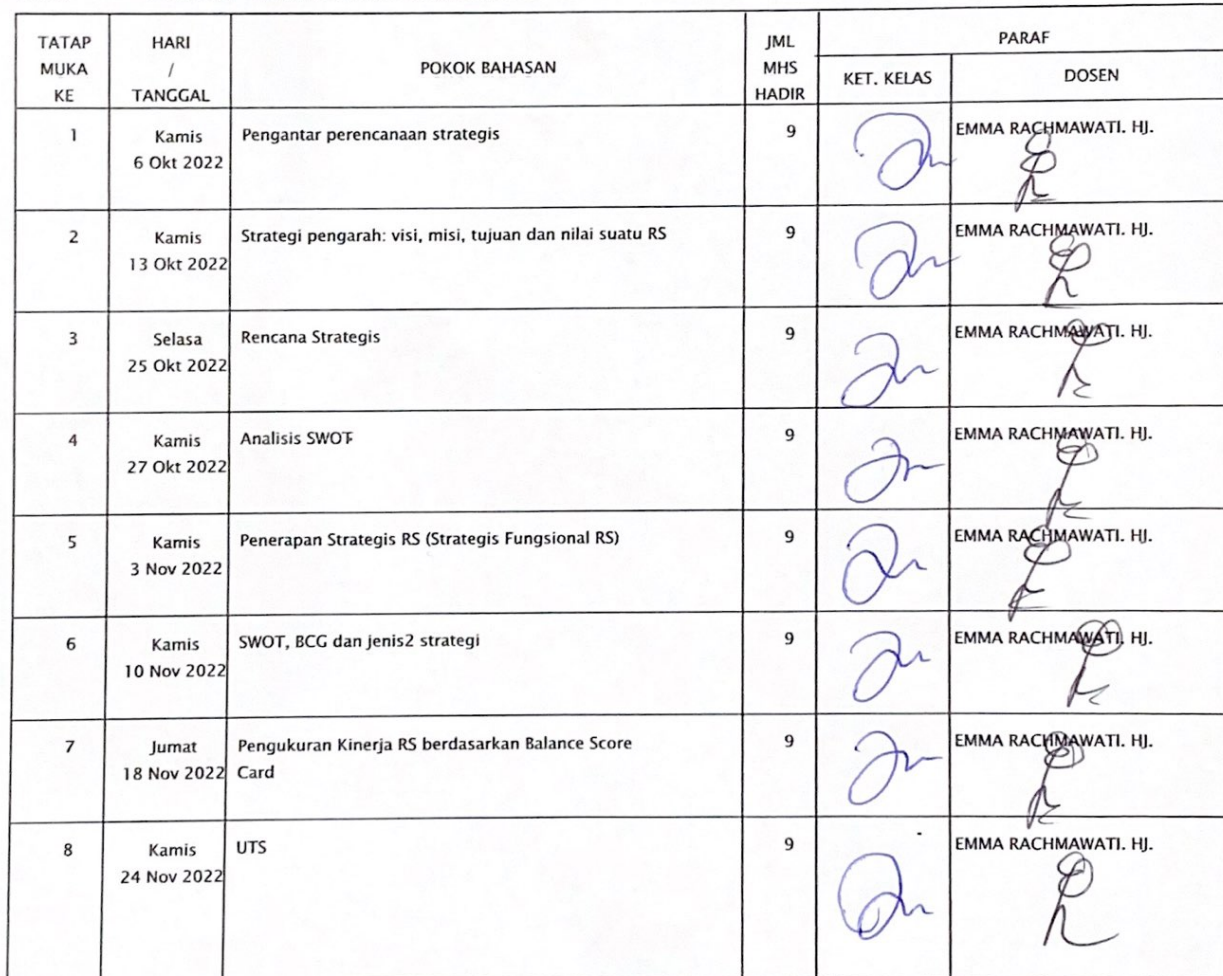 TATAP MUKA KE
HARI / TANGGAL
POKOK BAHASAN
JML MHS HADIR
PARAF
KET. KELAS
DOSEN
1
Kamis
6 Okt 2022
Pengantar perencanaan strategis
9
EMMA RACHMAWATI. HJ.
2
Kamis
13 Okt 2022
Strategi pengarah: visi, misi, tujuan dan nilai suatu RS
9
EMMA RACHMAWATI. HJ.
3
Selasa
25 Okt 2022
Rencana Strategis
9
EMMA RACHMAWATI. HJ.
4
Kamis
27 Okt 2022
Analisis SWOT
9
EMMA RACHMAWATI. HJ.
5
Kamis
3 Nov 2022
Penerapan Strategis RS (Strategis Fungsional RS)
9
EMMA RACHMAWATI. HJ.
6
Kamis
10 Nov 2022
SWOT, BCG dan jenis2 strategi
9
EMMA RACHMAWATI. HJ.
7
Jumat
18 Nov 2022
Pengukuran Kinerja RS berdasarkan Balance Score
Card
9
EMMA RACHMAWATI. HJ.
8
Kamis
24 Nov 2022
UTS
9
EMMA RACHMAWATI. HJ.